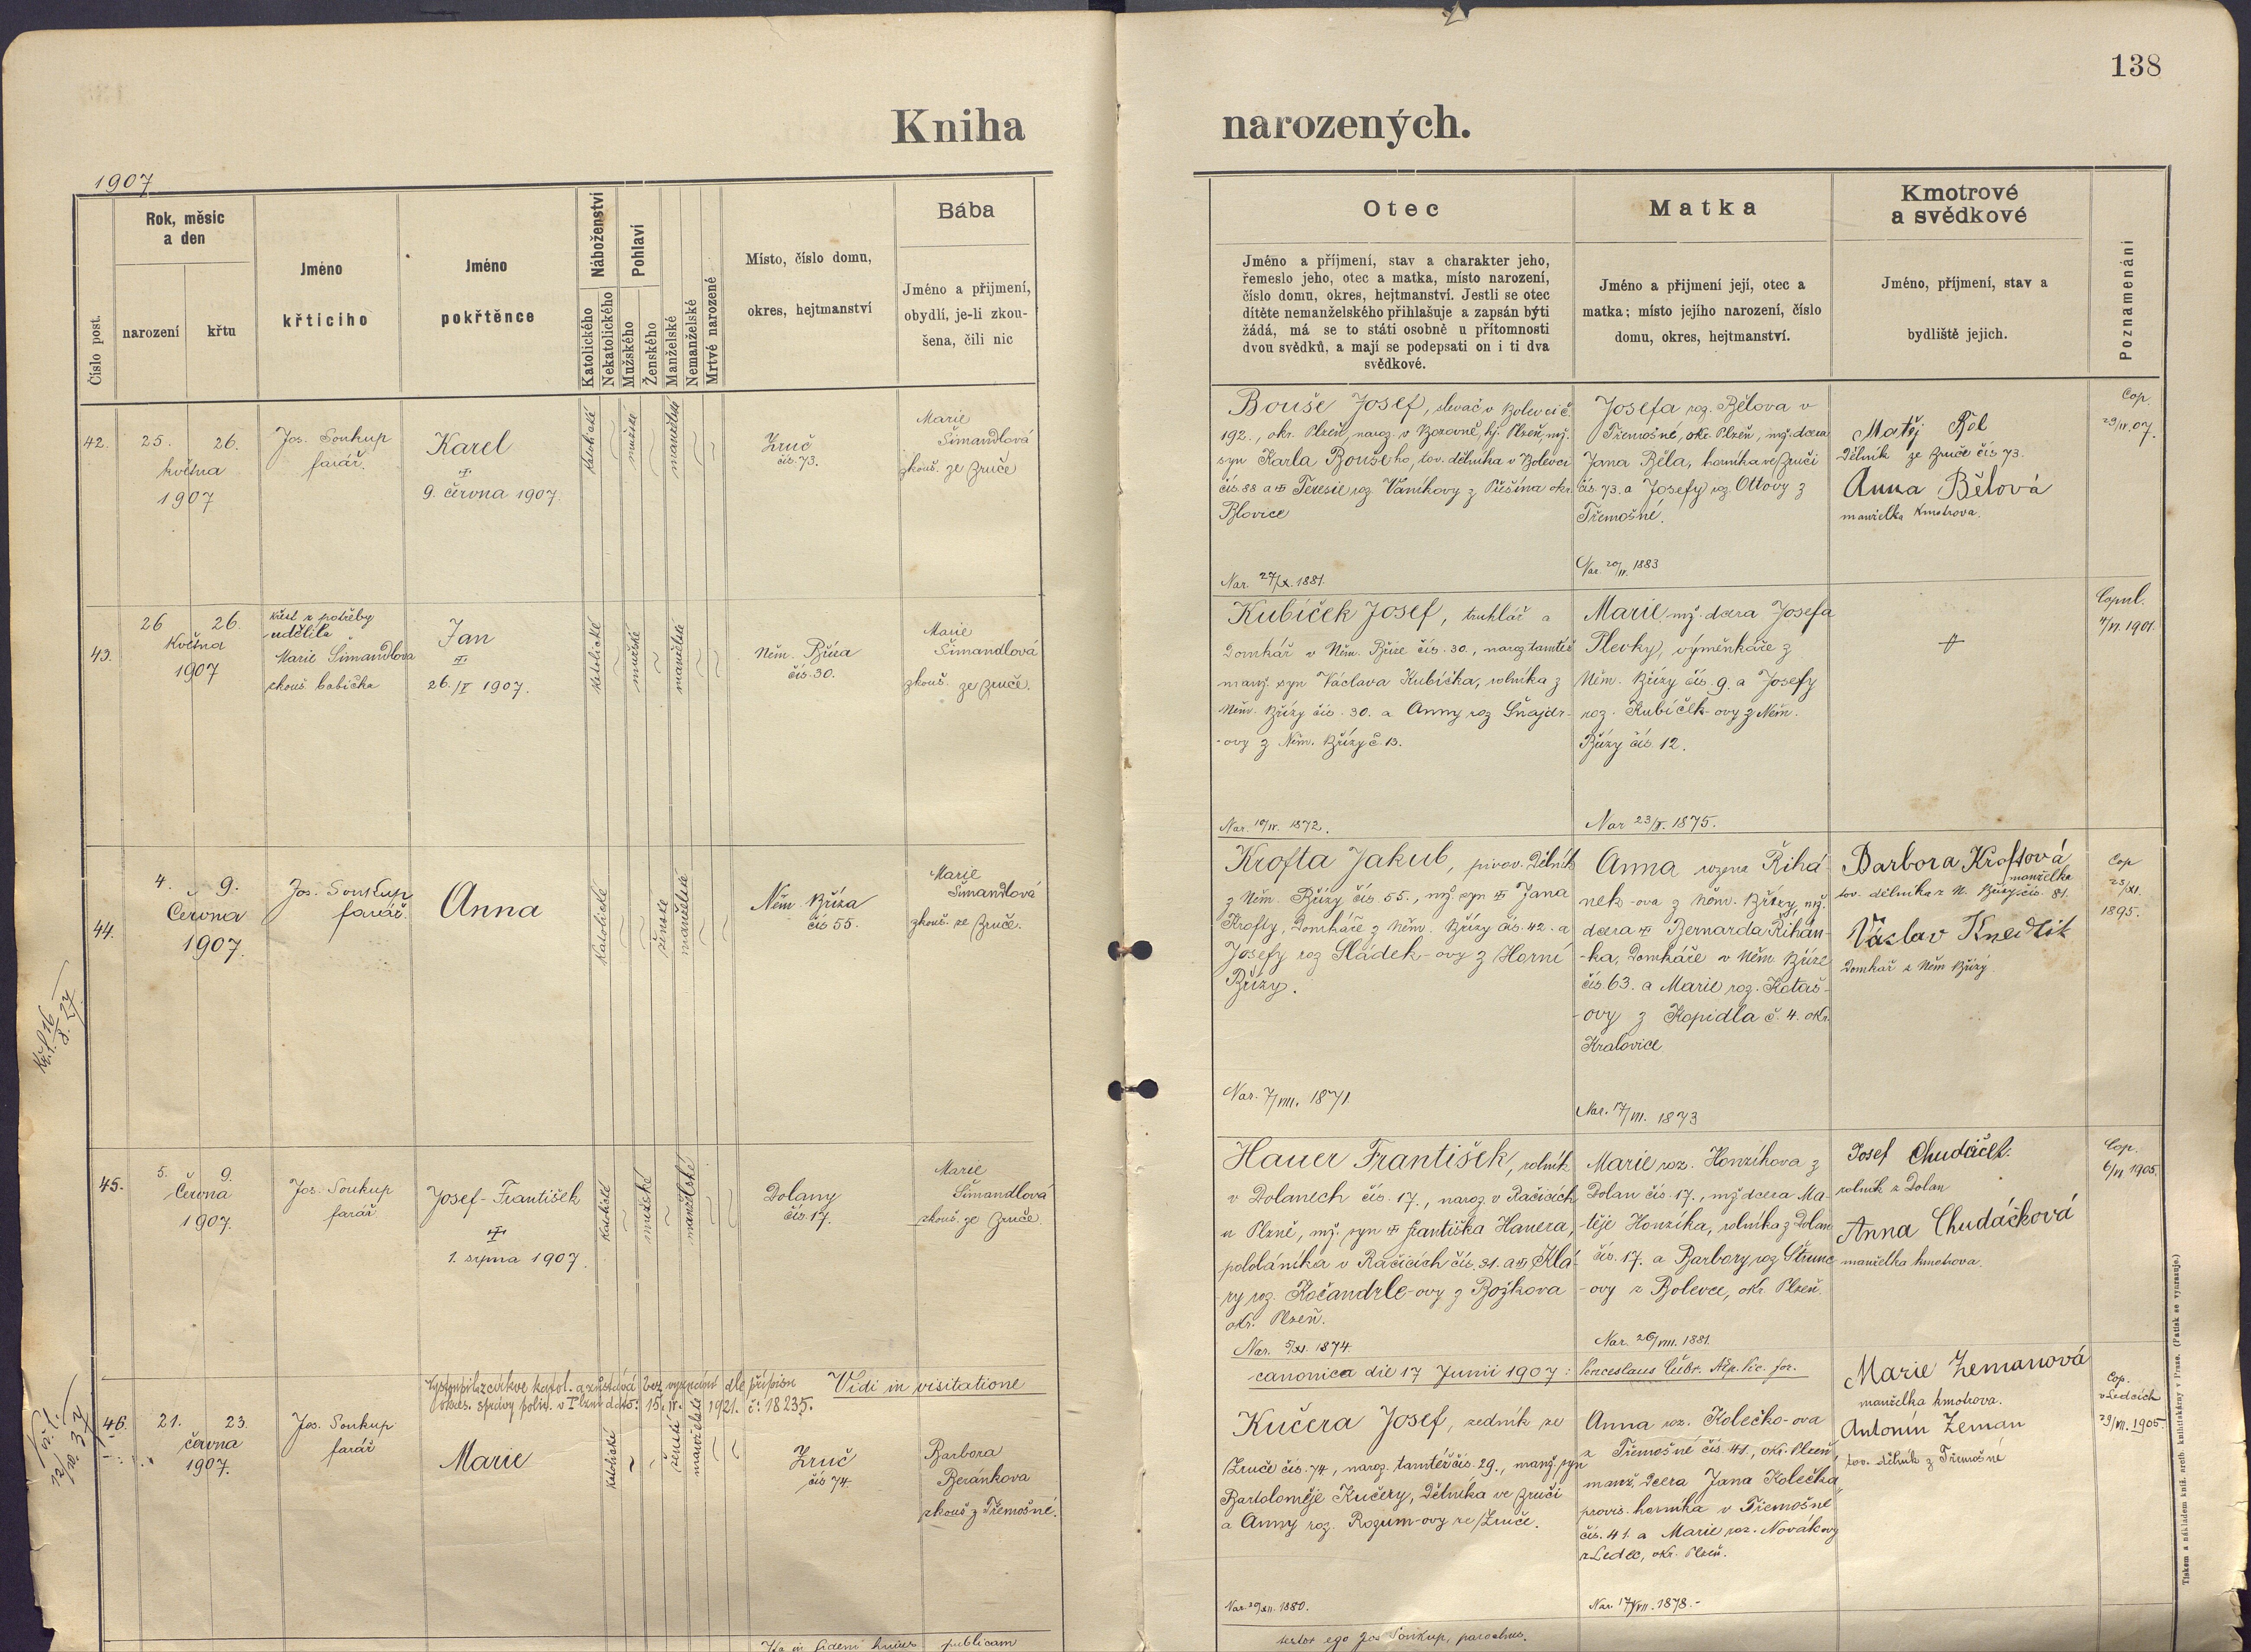 138
Kniha narozených.
1907
Číslo post.
Rok, měsíc
a den
narození
křtu
Jméno
křtícího
Jméno
pokřtěnce
Náboženství
Katolického
Nekatolického
Pohlaví
Mužského
Ženského
Manželské
Nemanželské
Mrtvé narozené
Místo, číslo domu,
okres, hejtmanství
Bába
Jméno a přijmení,
obydlí, je-li zkou-
šena, čili nic
Otec
Jméno a příjmení, stav a charakter jeho,
řemeslo jeho, otec a matka, místo narození,
číslo domu, okres, hejtmanství. Jestli se otec
dítěte nemanželského přihlašuje a zapsán býti
žádá, má se to státi osobně u přítomnosti
dvou svědků, a mají se podepsati on i ti dva
svědkové.
Matka
Jméno a přijmení její, otec a
matka; místo jejího narození, číslo
domu, okres, hejtmanství.
Kmotrové
a svědkové
Jméno, příjmení, stav a
bydliště jejich.
Poznamenání
42.
25. 26.
května
1907
Jos. Soukup
farář.
Karel
9. června 1907.
katolické
mužské
manželské
Zruč
čís. 73.
Marie
Šimandlová
zkouš. ze Zruče
Bouše Josef, slevač v Bolevci č.
192., okr. Plzeň, naroz. v Borovně, hj. Plzeň, mž.
syn Karla Boušeho, tov. dělníka v Bolevci
čís. 88 a Teresie roz. Vaníkovy z Přešína okr.
Blovice
Nar. 27/X. 1881.
Josefa roz. Bělova v
Třemošné, okr. Plzeň, mž. dcera
Jana Běla, horníka ve Zruči
čís. 73. a Josefy roz. Ottovy z
Třemošné.
Nar. 20/IV. 1883
Matěj Běl
dělník ze Zruče čís 73.
Anna Bělová
manželka kmotrova.
Cop.
29/IV. 07.
43.
26 26.
Května
1907
křest z potřeby
udělila
Marie Šimandlova
zkouš babička
Jan
26./V 1907.
katolické
mužské
manželské
Něm. Bříza
čís. 30.
Marie
Šimandlová
zkouš. ze Zruče.
Kubíček Josef, truhlář a
domkář v Něm. Bříze čís. 30., naroz tamtéž
manž. syn Václava Kubíčka, rolníka z
Něm. Břízy čís. 30. a Anny roz Šnajdr-
-ovy z Něm. Břízy č 13.
Nar. 10/IV. 1872.
Marie, mž. dcera Josefa
Plevky, výměnkáře z
Něm. Břízy čís. 9. a Josefy
roz. Kubíček-ovy z Něm.
Břízy čís. 12.
Nar 23/V. 1875.
Copul.
4/VI. 1901.
44.
4. 9.
Června
1907.
Jos. Soukup
farář.
Anna
katolické
ženské
manželské
Něm Bříza
čís 55.
Marie
Šimandlová
zkouš. ze Zruče.
Krofta Jakub, pivov. dělník
z Něm. Břízy čís. 55., mž. syn Jana
Krofty, domkáře z Něm. Břízy čís. 42. a
Josefy roz Sládek-ovy z Horní
Břízy.
Nar. 7/VIII. 1871.
Anna rozená Řihá-
nek-ova z Něm. Břízy, mž.
dcera Bernarda Řihán-
-ka, domkáře v Něm. Bříze
čís. 63. a Marie roz. Kotaš-
-ovy z Kopidla č. 4. okr.
Kralovice
Nar. 17/VII. 1873
Barbora Kroftová,
manželka
tov. dělníka z N. Břízy čís. 81.
Václav Knedlík
domkář z Něm Břízy
Cop
25/XI.
1895.
45.
5. 9.
Června
1907.
Jos. Soukup
farář
Josef-František
1. srpna 1907.
katolické
mužské
manželské
Dolany
čís. 17.
Marie
Šimandlová
zkouš. ze Zruče.
Hauer František, rolník
v Dolanech čís. 17., naroz. v Račicích
u Plzně, mž. syn Františka Hauera,
pololáníka v Račicích čís. 31. a Klá-
ry roz. Kočandrle-ovy z Božkova
okr. Plzeň.
Nar. 5/XI. 1874
Marie roz. Honzíkova z
Dolan čís. 17., mž. dcera Ma-
-těje Honzíka, rolníka z Dolan
čís. 17. a Barbory roz Štrunc
-ovy z Bolevce, okr. Plzeň.
Nar. 26/VIII. 1881.
Josef Chudáček.
rolník z Dolan
Anna Chudáčková
manželka kmotrova.
Cop.
6/VI 1905.
Vystoupil z církve katol. a zůstává bez vyznání dle přípisu
okres. správy polit. v Plzni dato: 15. IV. 1921. č: 18235.
Vidi in visitatione
canonica die 17 Junii 1907:
46.
21. 23.
června
1907.
Jos. Soukup
farář
Marie
katolické
ženské
manželské
Zruč
čís 74.
Barbora
Beránkova
zkouš z Třemošné.
Kučera Josef, zedník ze
Zruče čís. 74, naroz. tamtéž čís. 29., manž. syn
Bartoloměje Kučery, dělníka ve Zruči
a Anny roz. Rozum-ovy ze Zruče.
Anna roz. Kolečko-ova
z Třemošné čís. 41., okr. Plzeň
manž. dcera Jana Kolečka,
provis. horníka v Třemošné
čís. 41. a Marie roz. Novákovy
z Ledec, okr. Plzeň.
Nar 17/VII. 1878.-
Marie Zemanová
manželka kmotrova.
Antonín Zeman
tov. dělník z Třemošné
Cop.
v Ledcích
29/VII. 1905.
publicam
testor ego Jos Soukup, parochus.
Tiskem a nákladem kníž. arcib. knihtiskárny v Praze. (Patisk se vyhrazuje.)